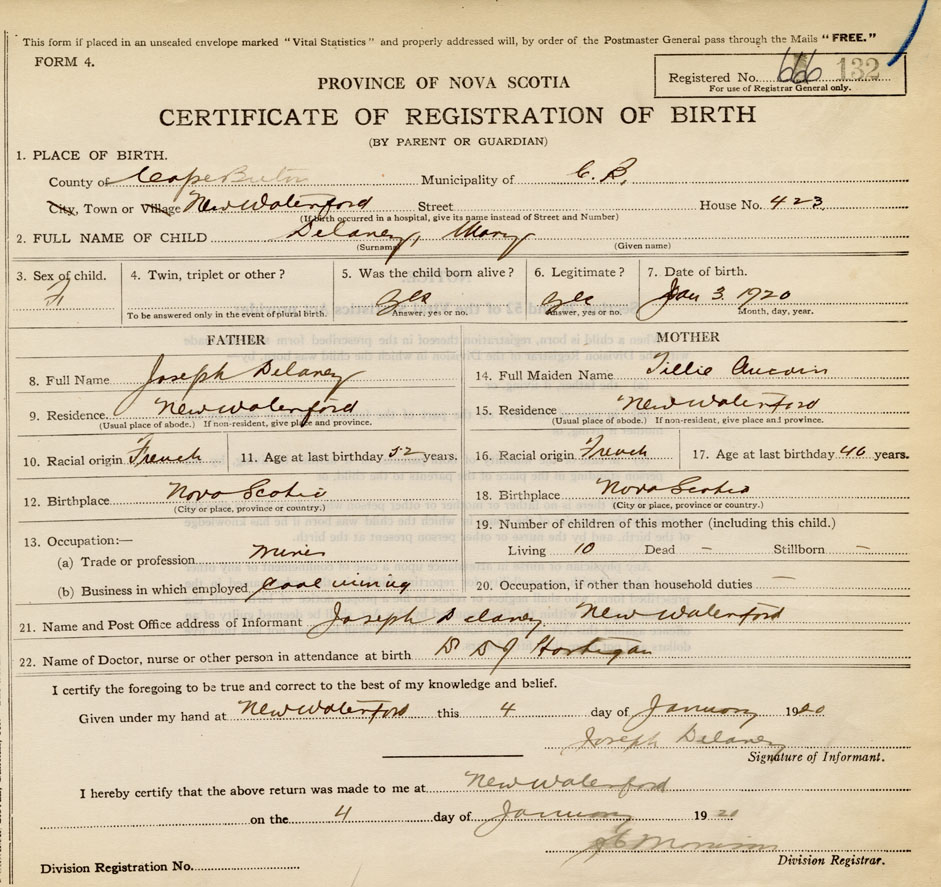 This form if placed in an unsealed envelope marked "Vital Statistics" and properly addressed will, by order of the Postmaster General pass through the Mails "FREE."
FORM 4.
Registered No. 666 132
For use of Registrar General only.
PROVINCE OF NOVA SCOTIA
CERTIFICATE OF REGISTRATION OF BIRTH
(BY PARENT OR GUARDIAN)
1. PLACE OF BIRTH.
County of Cape Breton Municipality of C. B.
City, Town or Village New Waterford Street House No. 423
(If birth occurred in a hospital, give its name instead of Street and Number)
2. FULL NAME OF CHILD Delaney, Mary
(Surname) (Given name)
3. Sex of child. 4. Twin, triplet or other? 5. Was the child born alive? 6. Legitimate? 7. Date of birth.
F. yes yes Jan 3. 1920
To be answered only in the event of plural birth. Answer, yes or no. Answer, yes or no. Month, day, year.
FATHER MOTHER
8. Full Name Joseph Delaney 14. Full Maiden Name Tillie Aucoin
9. Residence. New Waterford 15. Residence New Waterford
(Usual place of abode.) If non-resident, give place and province. (Usual place of abode.) If non-resident, give place and province.
10. Racial origin French 11. Age at last birthday 52 years. 16. Racial origin French 17. Age at last birthday 40 years.
12. Birthplace Nova Scotia 18. Birthplace Nova Scotia
(City or place, province or country.) (City or place, province or country.)
13. Occupation:— 19. Number of children of this mother (including this child.)
(a) Trade or profession miner Living 10 Dead — Stillborn —
(b) Business in which employed Coal mining 20. Occupation, if other than household duties —
21. Name and Post Office address of Informant Joseph Delaney New Waterford
22. Name of Doctor, nurse or other person in attendance at birth Dr
I certify the foregoing to be true and correct to the best of my knowledge and belief.
Given under my hand at New Waterford this 4 day of January 1920
Joseph Delaney
Signature of Informant.
I hereby certify that the above return was made to me at New Waterford
on the 4 day of January 1920
Division Registration No. Division Registrar.